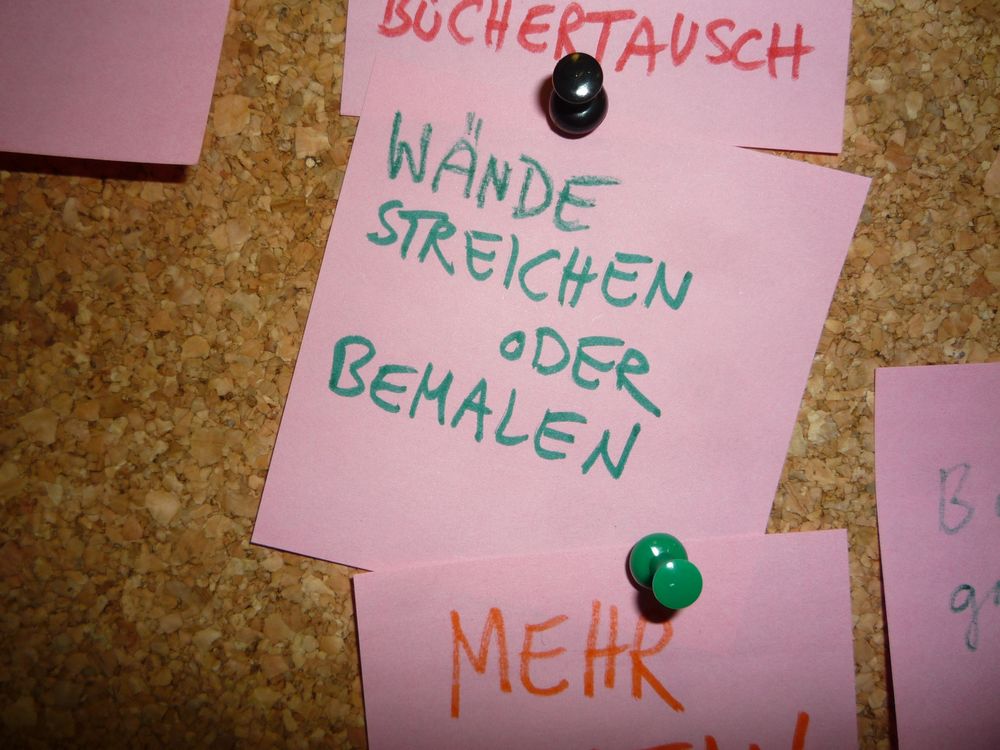 BÜCHERTAUSCH
WÄNDE
STREICHEN
ODER
BEMALEN
MEHR